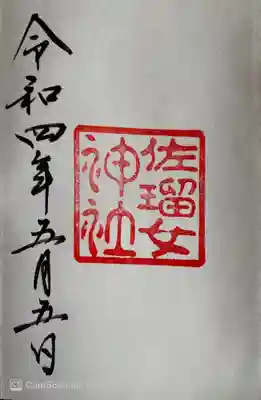 佐瑠女
神社
令和四年五月五日
CS CamScanner